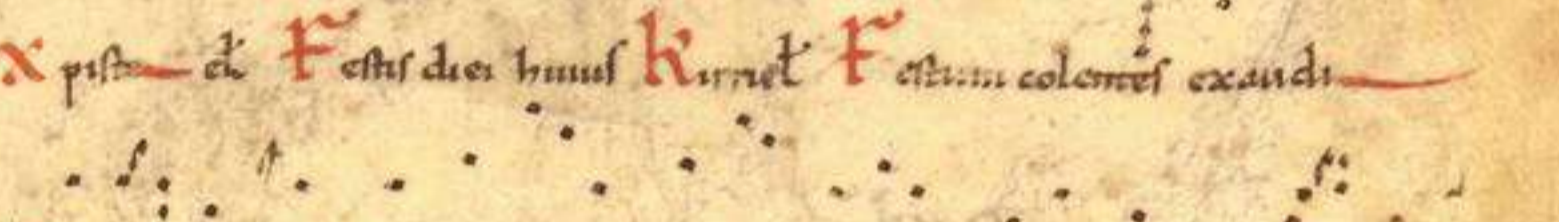 Xpiste el̄ Festis diei huius Kirriel̄ Festum colentes exaudi